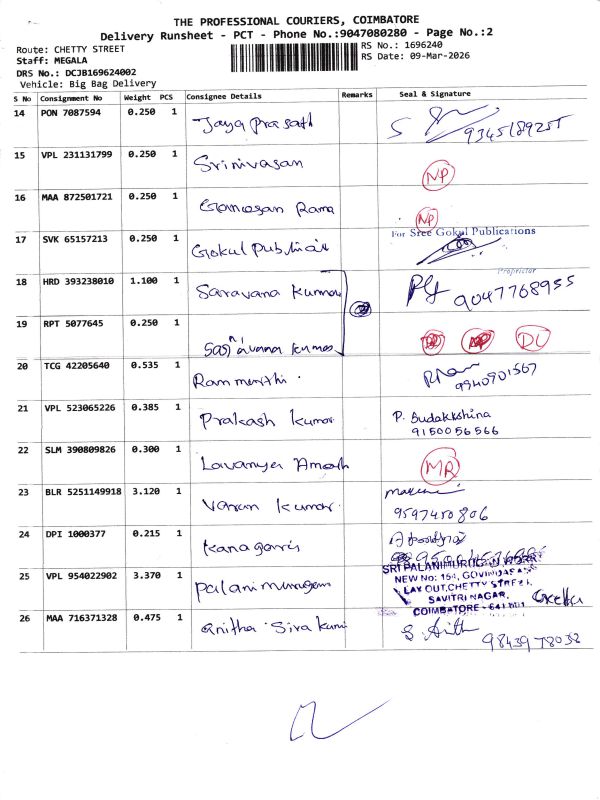 THE PROFESSIONAL COURIERS, COIMBATORE
Delivery Runsheet - PCT - Phone No.:9047080280 - Page No.:2
Route: CHETTY STREET
RS No.: 1696240
Staff: MEGALA
RS Date: 09-Mar-2026
DRS No.: DCJB169624002
Vehicle: Big Bag Delivery
S No Consignment No Weight PCS Consignee Details Remarks Seal & Signature
14 PON 7087594 0.250 1 Jaya Prasath 9345189255
15 VPL 231131799 0.250 1 Srinivasan NP
16 MAA 872501721 0.250 1 Ganesan Rama NP
17 SVK 65157213 0.250 1 Gokul Publicat For Sree Gokul Publications
Proprietor
18 HRD 393238010 1.100 1 Saravana Kumar 9047768955
19 RPT 5077645 0.250 1 Saravana Kumar DL
20 TCG 42205640 0.535 1 Ram murthi. 9940901567
21 VPL 523065226 0.385 1 Prakash Kumar P. Budakkshina
9150056566
22 SLM 390809826 0.300 1 Lavanya MR
23 BLR 5251149918 3.120 1 Varun Kumar.
9597450806
24 DPI 1000377 0.215 1
25 VPL 954022902 3.370 1 Palanimurugan
NEW No: 164, GOVINDASAMY
LAY OUT, CHETTY STREET,
SAVITRI NAGAR,
COIMBATORE - 641
26 MAA 716371328 0.475 1 Anitha Siva kumar 9843978032